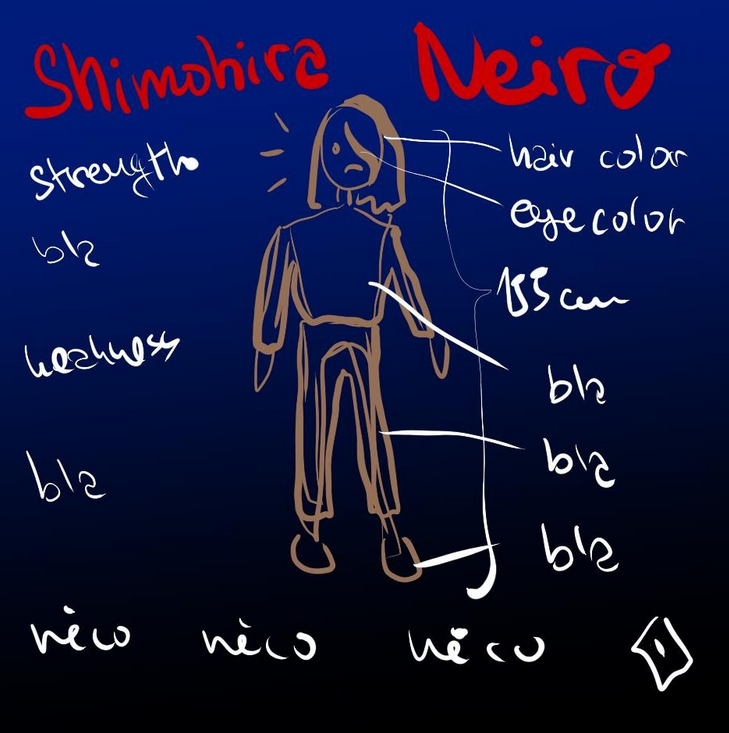 Shimohira Neiro
strength
bla
weakness
bla
hair color
eye color
155 cm
bla
bla
bla
něco něco něco